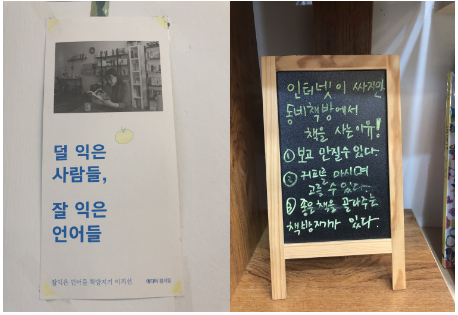 덜 익은
사람들,
잘 익은
언어들
덜익은 언어들 책방지기 이희선
인터넷이 싸지만
동네책방에서
책을 사는 이유!
① 보고 만질수 있다.
② 커피를 마시며
고를 수 있다.
③ 좋은 책을 골라주는
책방지기가 있다.